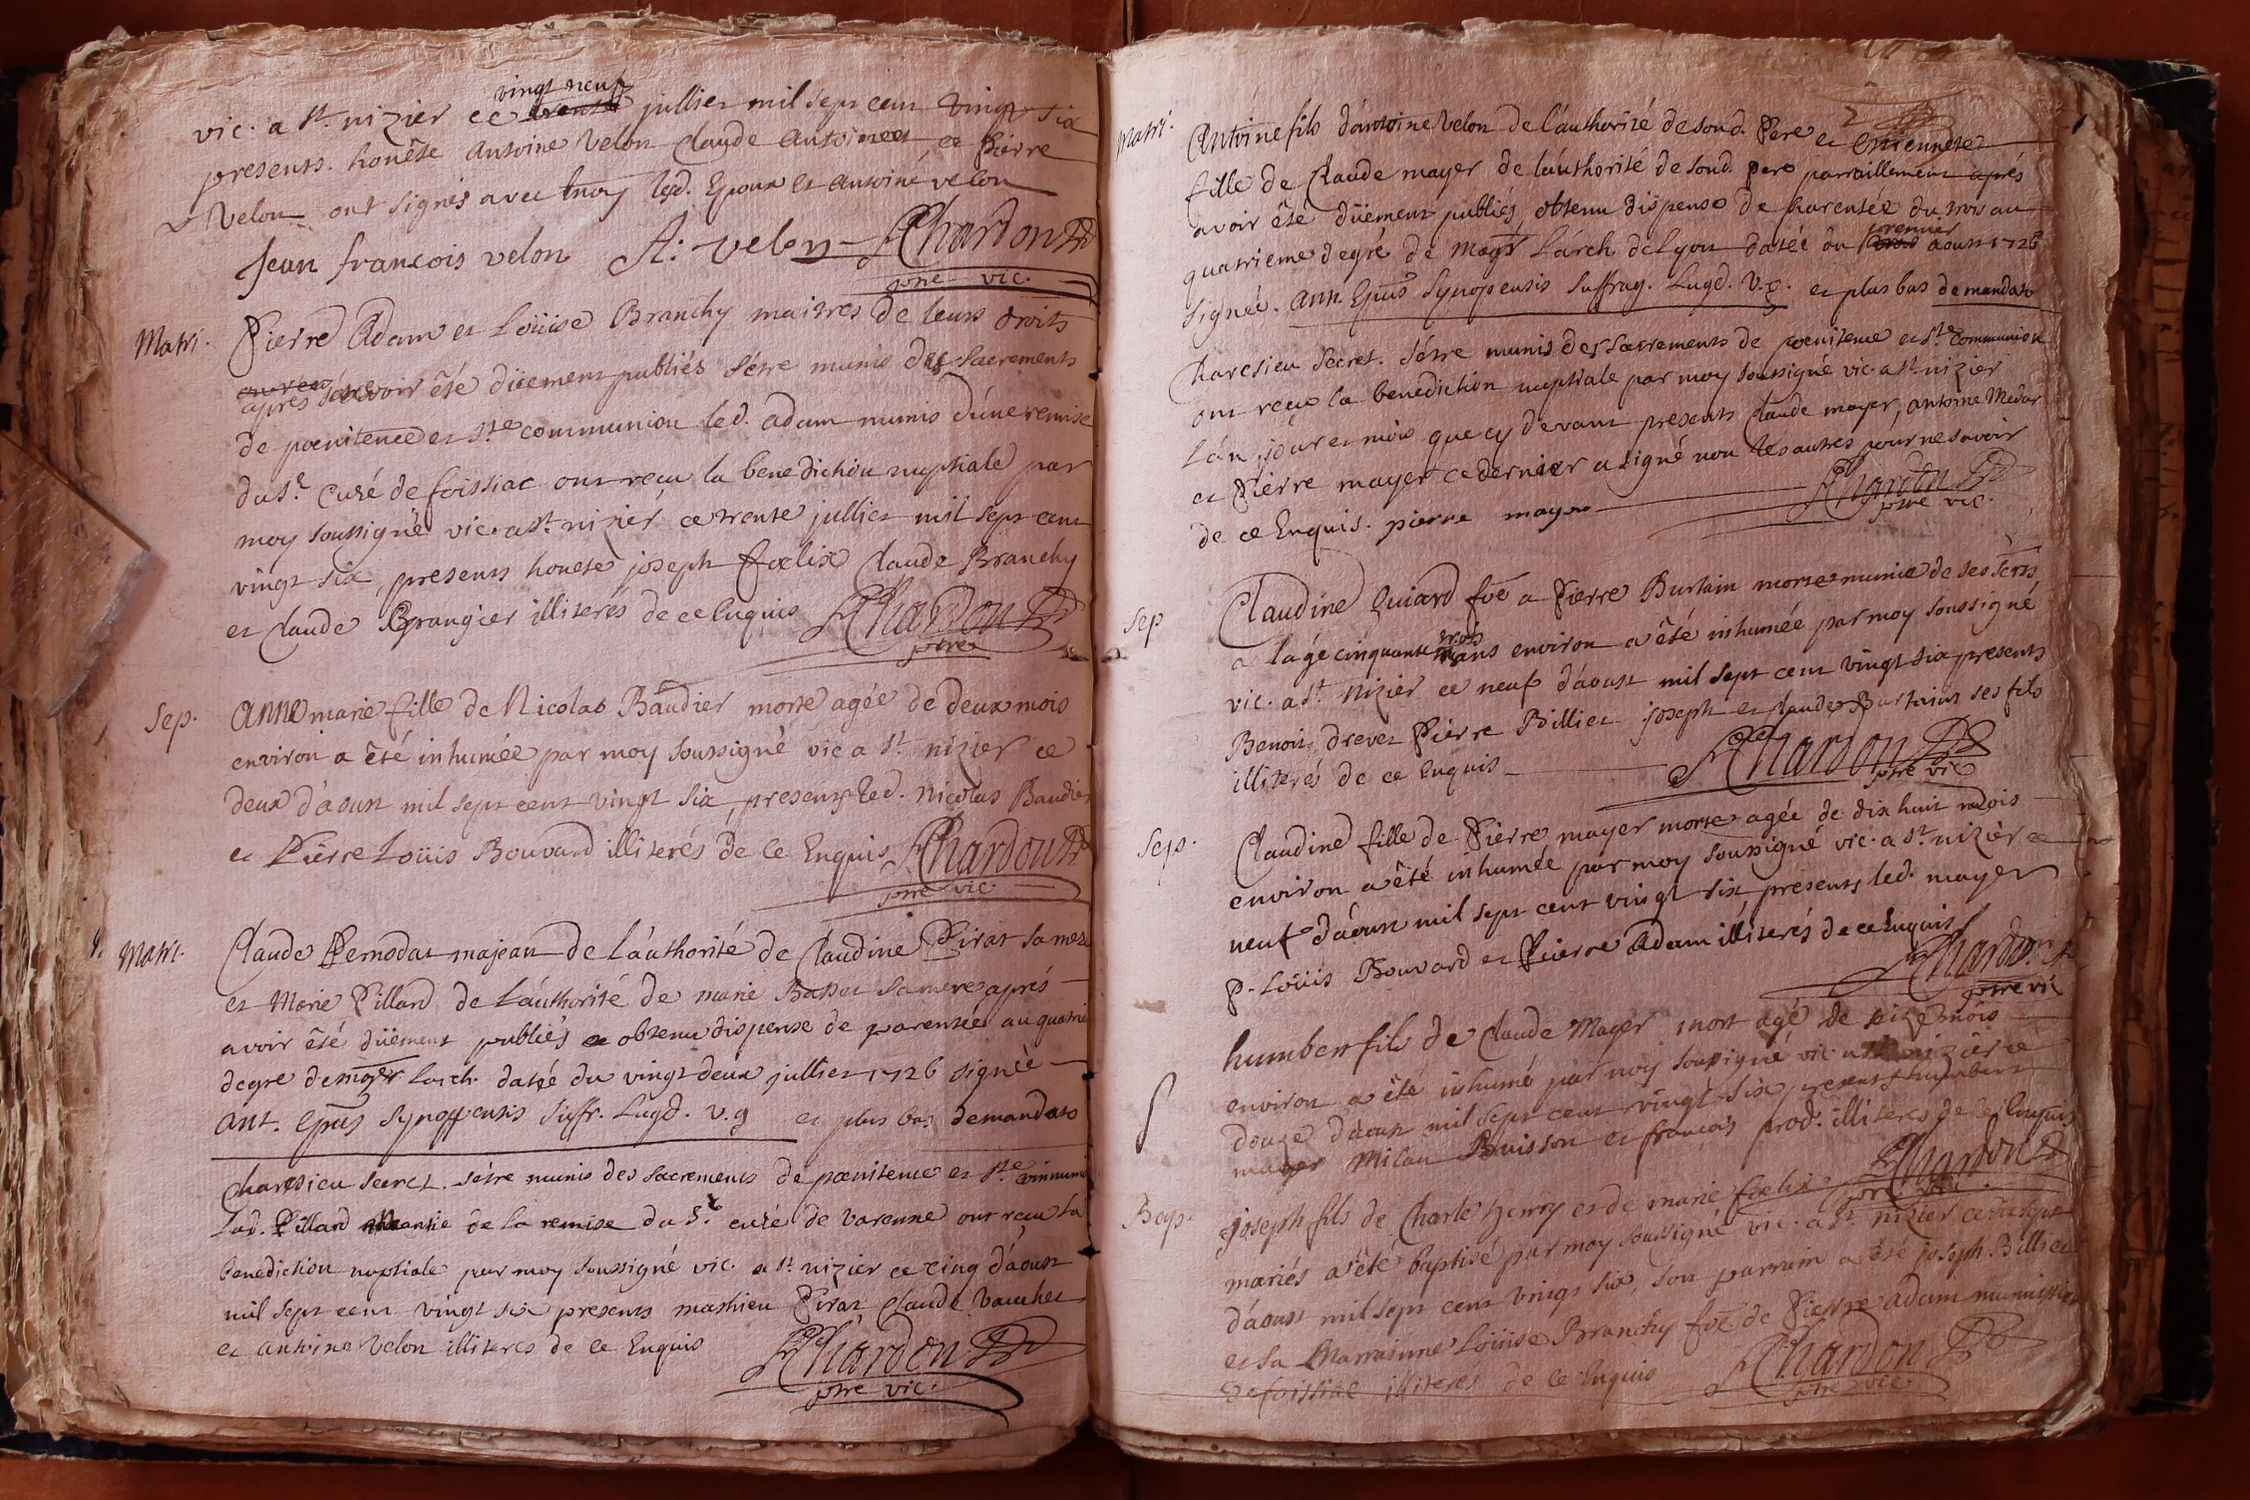 vingt neuf
vic. a st. nizier ce trente jullier mil sept cent vingt six
presents. honête antoine velon Claude antoine et Pierre
Velon ont signés avec moy led. Epoux et antoine velon
Jean francois velon A: velon Chardon
ptre vic.
Matri. Pierre Adam et Loüise Branchy maitres de leurs droits
aprés avoir êté düement publiés s'étre munis des sacrements
de poenitence et ste communion led. adam munis d'une remise
du sr. curé de foissiac ont recu la benediction nuptiale par
moy soussigné vic. a st. nizier ce trente jullier mil sept cent
vingt six, presents honete joseph foelix Claude Branchy
et Claude Grangier illiterés de ce Enquis Chardon
ptre
Sep. Anne marie fille de Nicolas Baudier morte agée de deux mois
environ a êté inhumée par moy soussigné vic a st. nizier ce
deux d'aoust mil sept cent vingt six, presents led. nicolas Baudier
et Pierre Loüis Bouvard illiterés de ce Enquis Chardon
ptre vic.
Matri. Claude Pernodat majean de l'authorité de Claudine Pirat sa mere
et Marie Pillard de l'authorité de marie Basset sa mere aprés
avoir êté düement publiés et obtenu dispense de parentée au quatrie
degre de mgr larch. datée du vingt deux jullier 1726 signée
ant. Epus synoppensis suffr. Lugd. v. g et plus bas demandato
Charesieu secret. s'étre munis des sacrements de poenitence et ste communi
lad. Pillard munie de la remise du Sr. curé de varenne ont recu la
benediction nuptiale par moy soussigné vic. a st. nizier ce cinq d'aoust
mil sept cent vingt six presents mathieu Pirat Claude Vauchez
et antoine velon illiteres de ce Enquis Chardon
ptre vic.
Matri. Antoine fils d'antoine velon de l'authorité de sond. Pere et Etiennete
fille de Claude mayer de l'authorité de sond. pere parraillement aprés
avoir êté düement publiés obtenu dispense de parentée du trois au
premier
quatrieme degré de Mgr Larch de Lyon datée du trois aoust 1726
signée. Ant. Epus synopensis suffrag. Lugd. V. g. et plus bas demandato
Charesieu secret. s'étre munis des sacrements de poenitence et ste communion
ont reçu la benediction nuptiale par moy soussigné vic. a st. nizier
l'an jour et mois que cy devant presents Claude mayer, antoine Medar
et Pierre mayer ce dernier a signé non les autres pour ne savoir
de ce Enquis. pierre mayer Chardon
ptre vic.
Sep Claudine Guiard fve a Pierre Burtain morte munie de ses Scrts
trois
a lagé cinquante ans environ a êté inhumée par moy soussigné
vic. a st. nizier ce neuf d'aoust mil sept cent vingt six presents
Benoit drevet Pierre Billiet joseph et claude Burtains ses fils
illiterés de ce Enquis Chardon
ptre vic
Seps. Claudine fille de Pierre mayer morte agée de dix huit mois
environ a êté inhumée par moy soussigné vic. a st. nizier ce
neuf d'aoust mil sept cent vingt six, presents led. mayer
P. Loüis Bouvard et Pierre Adam illiterés de ce Enquis
Chardon
ptre vic
S humbert fils de Claude Mayer mort agé de seize mois
environ a êté inhumé par moy soussigné vic. a st. nizier ce
douze d'aoust mil sept cent vingt six, presents humbert
mayer Milan Buisson et francois prod. illiteres de ce Enquis
Chardon
ptre vic.
Bap. Joseph fils de Charle henry et de marie foelix
mariés a êté baptisé par moy soussigné vic. a st. nizier ce
d'aoust mil sept cent vingt six, son parrain a été joseph Billiet
et sa Marrainne Loüise Branchy fve de Pierre adam
de foissiac illiteres de ce Enquis Chardon
ptre vic